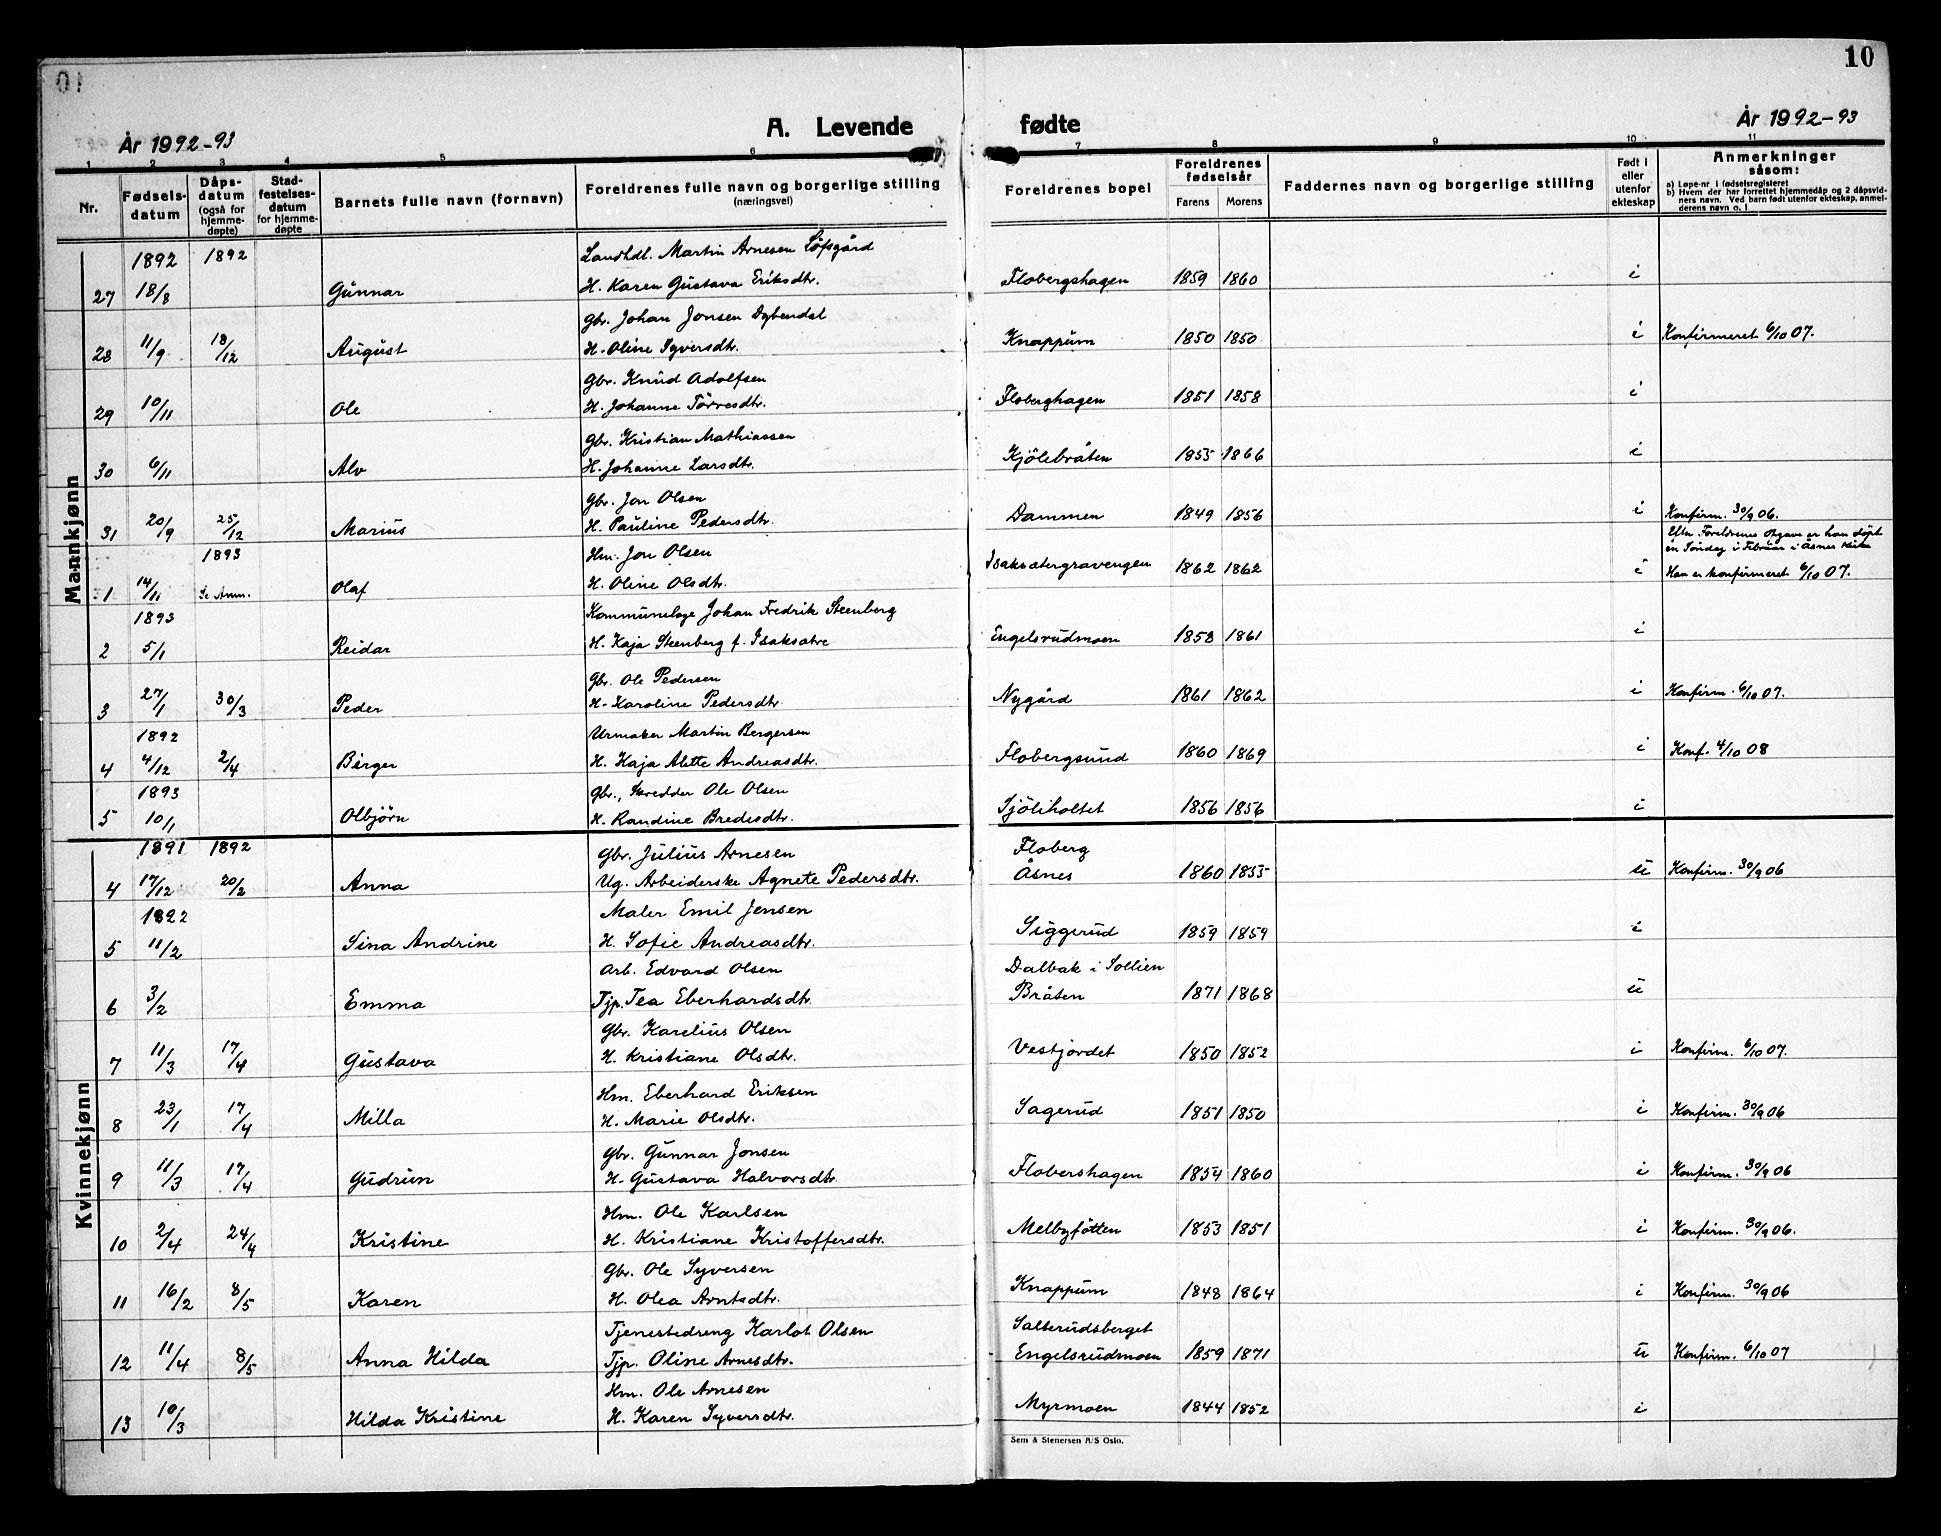 10
År 1992-93
A. Levende fødte
År 1992-93
1 2 3 4 5 6 7 8 9 10 11
Nr. Fødsels-datum Dåps-datum (også for hjemme-døpte) Stad-festelses-datum for hjemme-døpte Barnets fulle navn (fornavn) Foreldrenes fulle navn og borgerlige stilling (næringsvei) Foreldrenes bopel Foreldrenes fødselsår Farens Morens Faddernes navn og borgerlige stilling Født i eller utenfor ekteskap Anmerkninger såsom:
a) Løpe-nr i fødselsregisteret
b) Hvem der har forrettet hjemmedåp og 2 dåpsvid-
ners navn. Ved barn født utenfor ekteskap, anmel-
derens navn o. l
Mannkjønn
1892 1892 Landhdl. Martin Arnesen Löfsgård
27 18/8 Gunnar H. Karen Gustava Eriksdtr. Flobergshagen 1859 1860 i
Gbr. Johan Jonsen Dybendal
28 11/9 18/12 August H. Oline Syversdtr. Knappum 1850 1850 i Konfirmeret 6/10 07.
Gbr. Knud Adolfsen
29 10/11 Ole H. Johanne Törresdtr. Floberghagen 1851 1858 i
Gbr. Kristian Mathiassen
30 6/11 Alv H. Johanne Larsdtr. Kjölebråten 1855 1866 i
Gbr. Jon Olsen
31 20/9 25/12 Marius H. Pauline Pedersdtr. Dammen 1849 1856 i Konfirm. 30/9 06.
1893 Hm. Jon Olsen Efter Foreldrenes Opgave er han döpt
en Söndag i Februar i Åsnes Kirke
1 14/11 Se Anm. Olaf H. Oline Olsdtr. Isaksætergravengen 1862 1862 i Han er konfirmeret 6/10 07.
1893 Kommunelæge Johan Fredrik Steenberg
2 5/1 Reidar H. Kaja Steenberg f. Isaksætre Engelsrudmoen 1858 1861 i
Gbr. Ole Pedersen
3 27/1 30/3 Peder H. Karoline Pedersdtr. Nygård 1861 1862 i Konfirm. 6/10 07.
1892 Urmaker Martin Bergersen
4 4/12 2/4 Birger H. Kaja Alette Andreasdtr. Flobergsund 1860 1869 i Konf. 4/10 08
1893 Gbr., Skredder Ole Olsen
5 10/1 Olbjörn H. Randine Bredesdtr. Sjöliholtet 1856 1856 i
Kvinnekjønn
1891 1892 Gbr. Julius Arnesen Floberg
4 17/12 20/2 Anna Ug. Arbeiderske Agnete Pedersdtr. Åsnes 1860 1855 u Konfirm. 30/9 06
1892 Maler Emil Jensen
5 11/2 Sina Andrine H. Sofie Andreasdtr. Siggerud 1859 1859 i
Arb. Edvard Olsen Dalbak i Sollien
6 3/2 Emma Tjp. Tea Eberhardsdtr. Bråten 1871 1868 u
Gbr. Karelius Olsen
7 11/3 17/4 Gustava H. Kristiane Olsdtr. Vestjordet 1850 1852 i Konfirm. 6/10 07.
Hm. Eberhard Eriksen
8 23/1 17/4 Milla H. Marie Olsdtr. Sagerud 1851 1850 i Konfirm. 30/9 06
Gbr. Gunnar Jonsen
9 11/3 17/4 Gudrun H. Gustava Halvorsdtr. Flobershagen 1854 1860 i Konfirm. 30/9 06
Hm. Ole Karlsen
10 2/4 24/4 Kristine H. Kristiane Kristoffersdtr. Melbyfötten 1853 1851 i Konfirm. 30/9 06.
Gbr. Ole Syversen
11 16/2 8/5 Karen H. Olea Arntsdtr. Knappum 1848 1864 i Konfirm. 30/9 06
Tjenestedreng Karlot Olsen Salterudsberget
12 11/4 8/5 Anna Hilda Tjp. Oline Arnesdtr. Engelsrudmoen 1859 1871 u Konfirm. 6/10 07
Hm. Ole Arnesen
13 10/3 Hilda Kristine H. Karen Syversdtr. Myrmoen 1844 1852 i
Sem & Stenersen A/S Oslo.